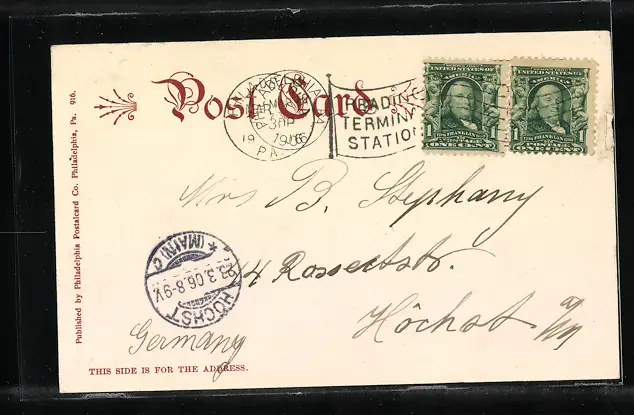 Post Card
PHILADELPHIA
MAR
3 30 P
1906
PA.
READING
TERMINAL
STATION
UNITED STATES OF
AMERICA
1 FRANKLIN 1
POSTAGE
ONE CENT
UNITED STATES OF
AMERICA
1 FRANKLIN 1
POSTAGE
Mrs B. Stephany
44 Rossertstr.
Höchst a/M
Germany
* (MAIN) C
23.3.06.8-9V.
HÖCHST
THIS SIDE IS FOR THE ADDRESS.
Published by Philadelphia Postalcard Co. Philadelphia, Pa. 916.